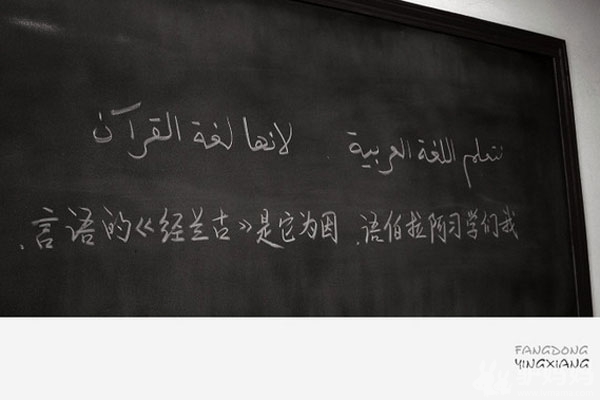 نتعلم اللغة العربية . لانها لغة القرآن
我们学习阿拉伯语、因为它是《古兰经》的语言.
FANGDONG
YINGXIANG